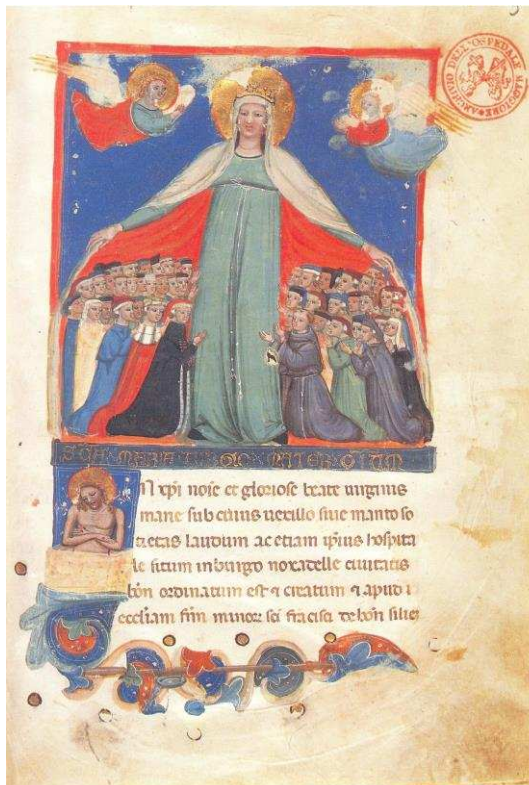 ARCHIVIO DELL'OSPEDALE MAGGIORE
MATER
N xpi noie et gloriose beate uirginis
marie sub cuius uexillo siue manto so
cietas laudum ac etiam ipius hospita
le situm in burgo noxadelle ciuitatis
bon ordinatum est citatum apud i
eccliam frm minor sci fracisci de bon